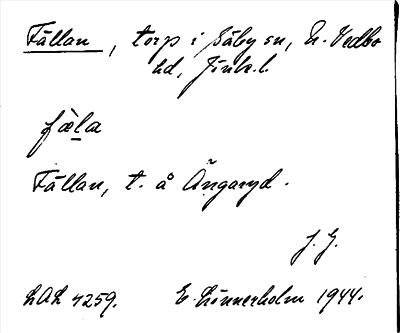 Fällan, torp i Säby sn, N. Vedbo
hd, Jönk. l.
fæ̀la
Fällan, t. å Ängaryd.
J. G.
LAL 4259. E. Linnerholm 1944.